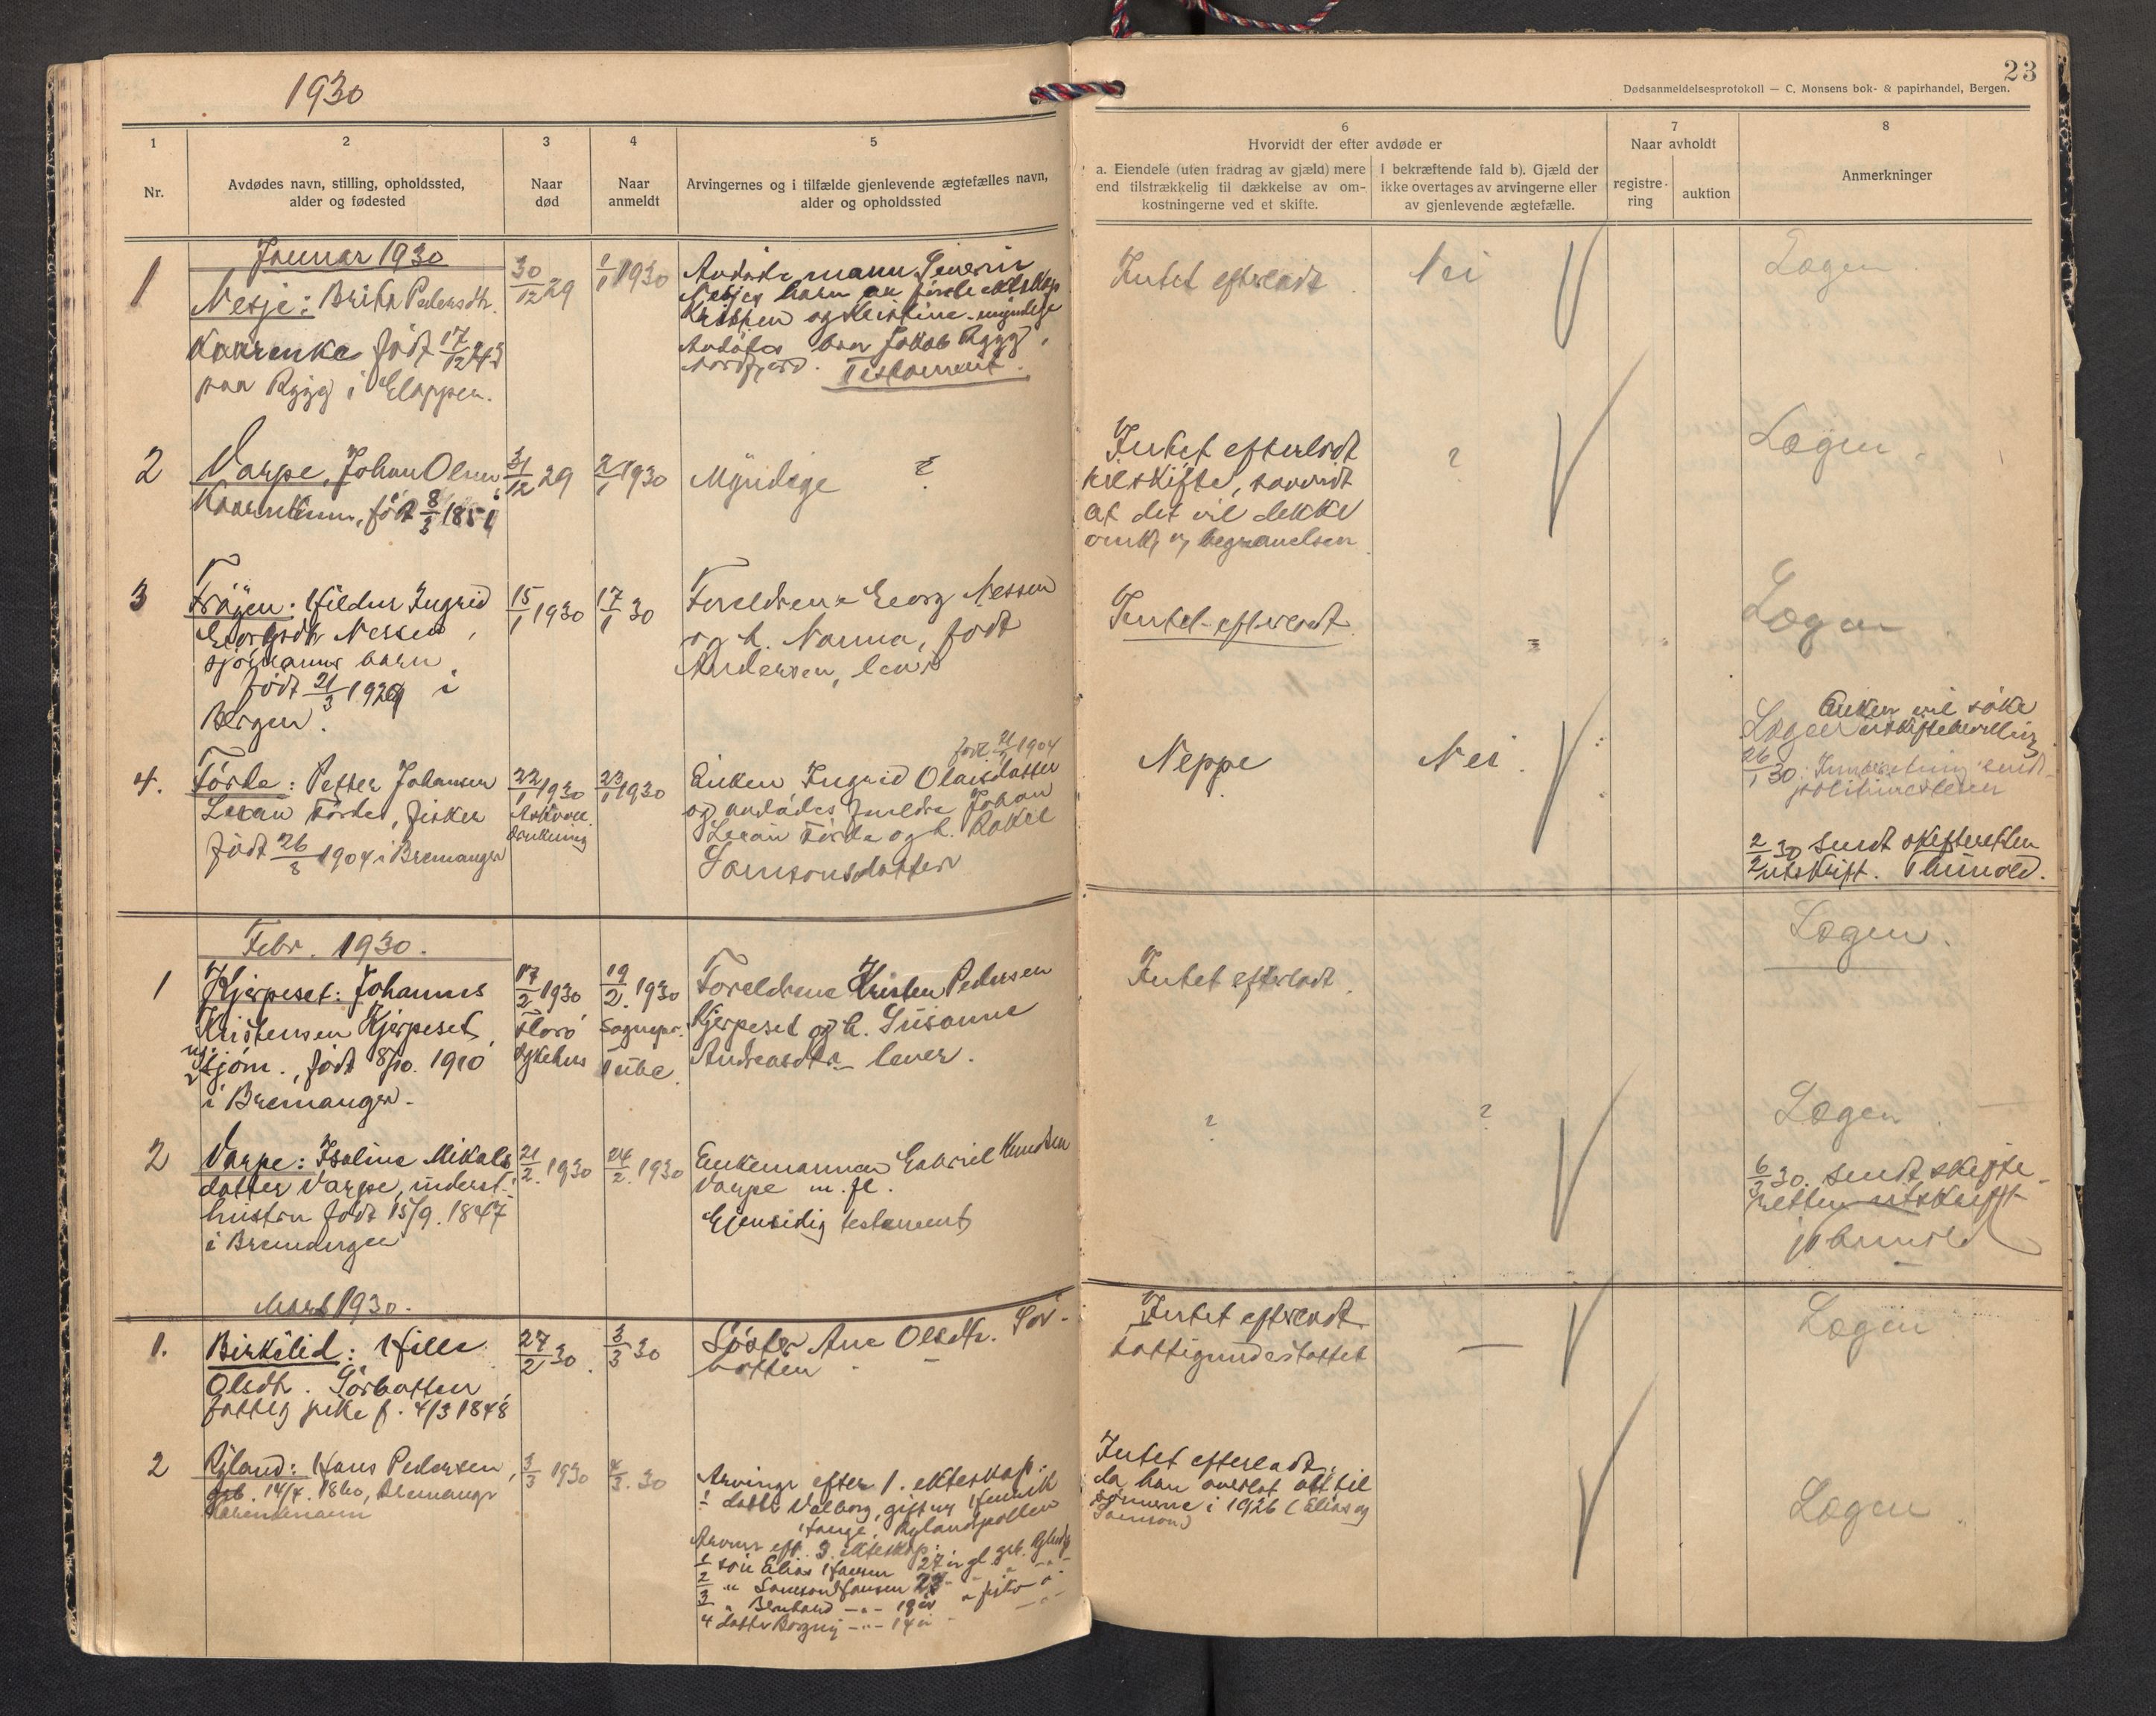 1930
23
Dødsanmeldelsesprotokoll — C. Monsens bok- & papirhandel, Bergen.
1
Nr.
2
Avdødes navn, stilling, opholdssted,
alder og fødested
3
Naar
død
4
Naar
anmeldt
5
Arvingernes og i tilfælde gjenlevende ægtefælles navn,
alder og opholdssted
6
Hvorvidt der efter avdøde er
a. Eiendele (uten fradrag av gjæld) mere
end tilstrækkelig til dækkelse av om-
kostningerne ved et skifte.
I bekræftende fald b). Gjæld der
ikke overtages av arvingerne eller
av gjenlevende ægtefælle.
7
Naar avholdt
registre-
ring
auktion
8
Anmerkninger
Januar 1930
1
Nesje: Brita Pedersdtr.
født 17/12
paa Rygg i Gloppen.
30/12 29
1/1 1930
mann
Kristine
bror Jakob Rygg,
Nordfjord. Testament.
Intet efterladt.
Nei
Lægen.
2
Varpe, Johan Olsen
Kaarmann, født 8/3 1851
31/12 29
2/1 1930
Myndige ?
Intet efterladt
til skifte,
at det vil dekke
omk. begravelsen
?
Lægen.
3
Frøyen: Hildur Ingrid
Georgsdtr Nessen,
sjømanns barn,
født 21/3 1929 i
Bergen.
15/1 1930
17/1 30
Foreldrene Georg Nessen
og h. Nanna, født
Andersen, lever
Intet efterladt.
Lægen
4.
Førde: Petter Johansen
Førde, fisker
født 26/8 1904 i Bremanger
22/1 1930
drukning
23/1 1930
født 21/ 1904
Enken Ingrid Olaisdatter
og avdødes foreldre Johan
Førde og h. Rakel
Samsonsdatter
Neppe
Nei.
Enken vil søke
Lægen uskiftebevilling
26/1 30. sendt
politimesteren
2/2 30 sendt skifteretten
utskrift.
Febr. 1930.
1
Kjerpeset: Johannes
Kristensen Kjerpeset,
sjøm., født 8/10. 1910
i Bremanger.
17/2 1930
Florø
sykehus
19/2. 1930
Sognepr.
Foreldrene Kristen Pedersen
Kjerpeset og h. Susanne
Andreasdtr lever.
Intet efterladt.
Lægen.
2
Varpe: Isaline Mikals
datter Varpe, underst.
hustru født 15/9. 1847
i Bremanger
21/2. 1930
24/2. 1930
Enkemannen Gabriel Knudsen
Varpe m. fl.
Gjensidig testament
?
?
Lægen
6/3 30. sendt skifte-
retten utskrift
Mars 1930.
1.
Birkelid: Hille
Olsdtr. Sørbotten
fattig pike f. 4/3 1848
27/2 30.
3/3 30
Søster Ane Olsdtr. Sør-
botten
Intet efterladt
fattigunderstøttet
—
Lægen
2
Ryland: Hans Pedersen,
14/4. 1860, Bremanger
3/3 1930
4/3. 30
Arvinger efter 1. ekteskap:
1 datter Valborg, gift m Henrik
Hauge, Rylandspollen
Arvinger eft. 2. ekteskap:
1 søn Elias Hansen 27 år
2 " Samson Hansen
3 " Bernhard —"— 19 år
4 datter Borgny —"— 14 år
Intet efterladt.
da han overlot alt til
sønnerne i 1926 (Elias og
Samson)
Lægen.